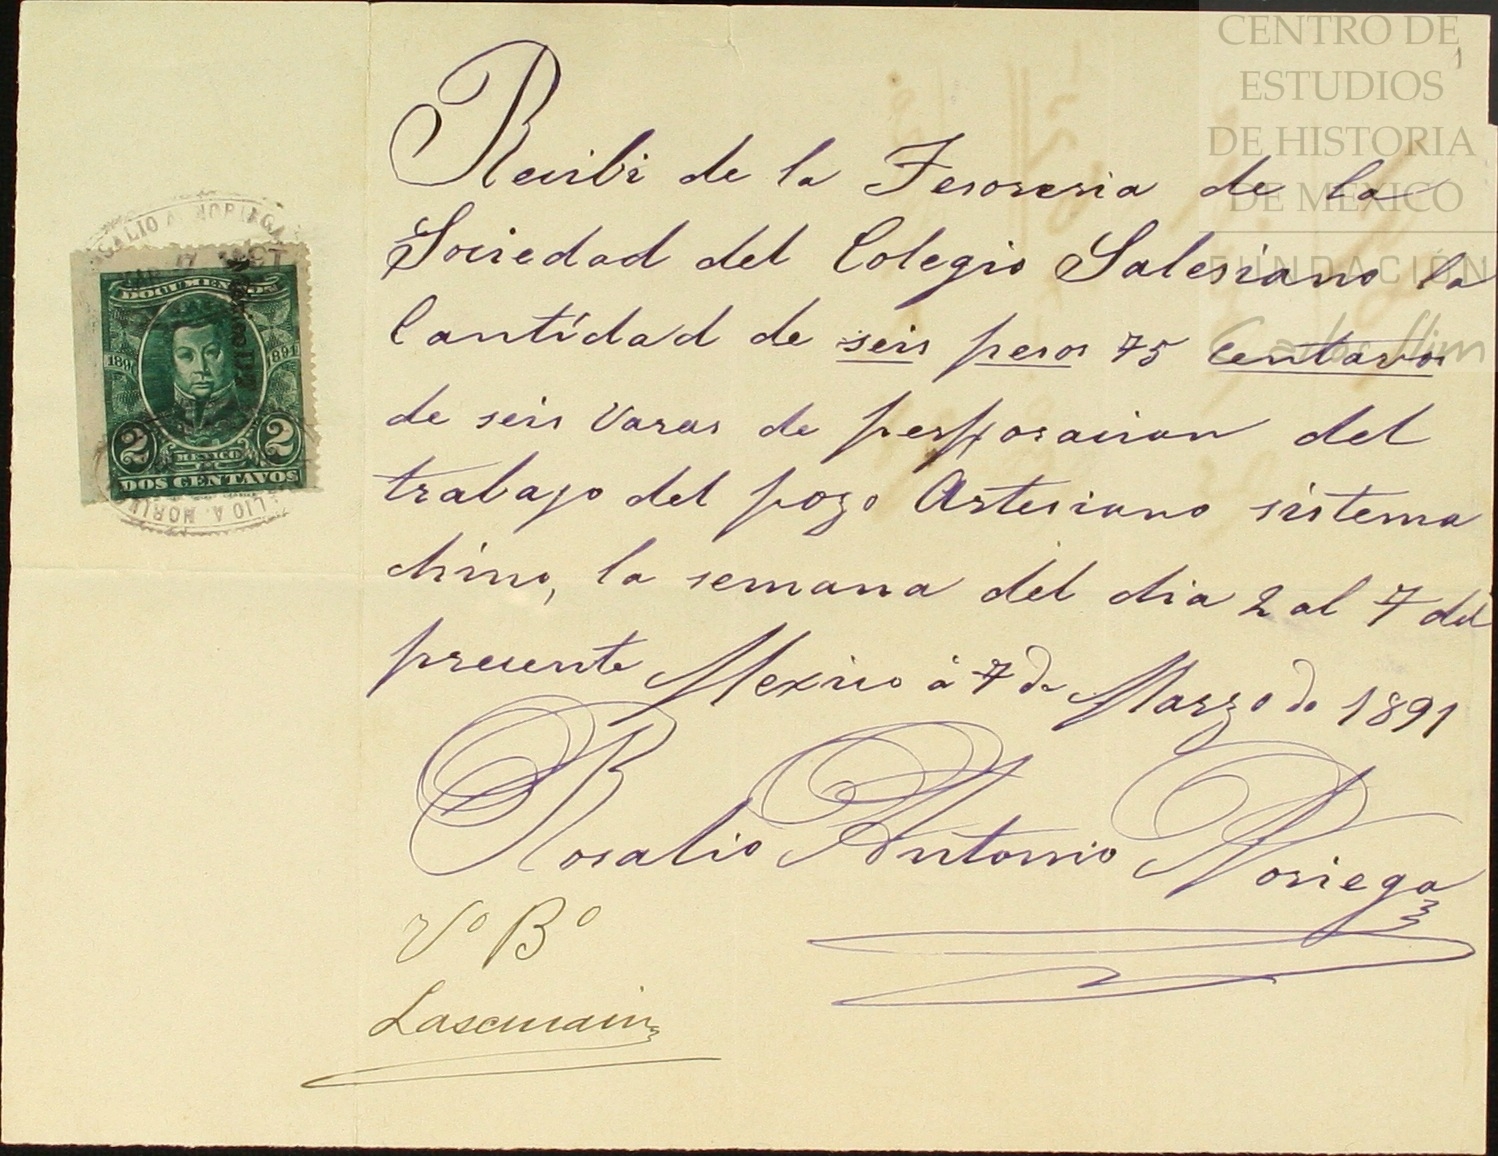 CENTRO DE
ESTUDIOS
DE HISTORIA
DE MÉXICO
FUNDACIÓN
Carlos Slim
Recibi de la Tesoreria de la
Sociedad del Colegio Salesiano la
Cantidad de seis pesos 75 Centavos
de seis varas de perforacion del
trabajo del pozo Artesiano sistema
chino, la semana del dia 2 al 7 del
presente Mexico á 7 de Marzo de 1891
Rosalio Antonio Noriega
Vº Bº
Lascurain
DOCUMENTOS
1890 1891
2 MEXICO 2
DOS CENTAVOS